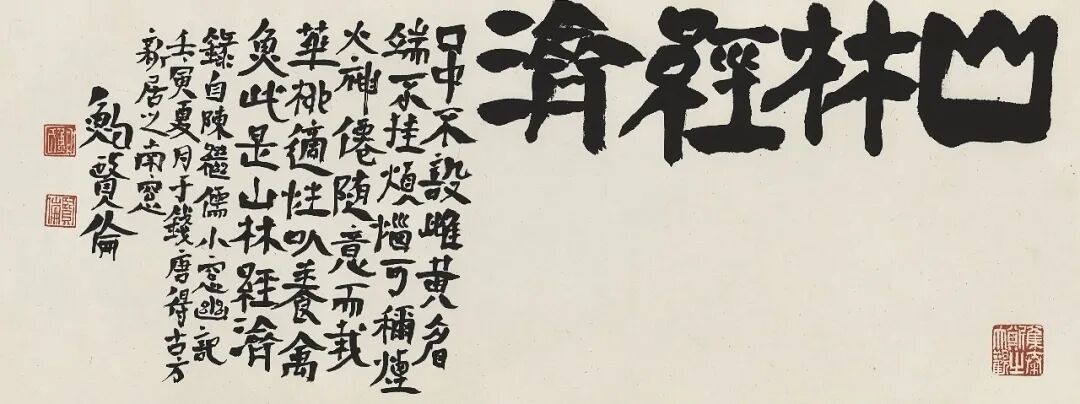 山林經濟
口中不設雌黃眉
端不挂煩惱可稱煙
火神僊隨意而栽
華柳適性以養禽
魚此是山林經濟
錄自陳繼儒小窗幽記
壬寅夏月于錢唐得古方
新居之南窗
鮑賢倫